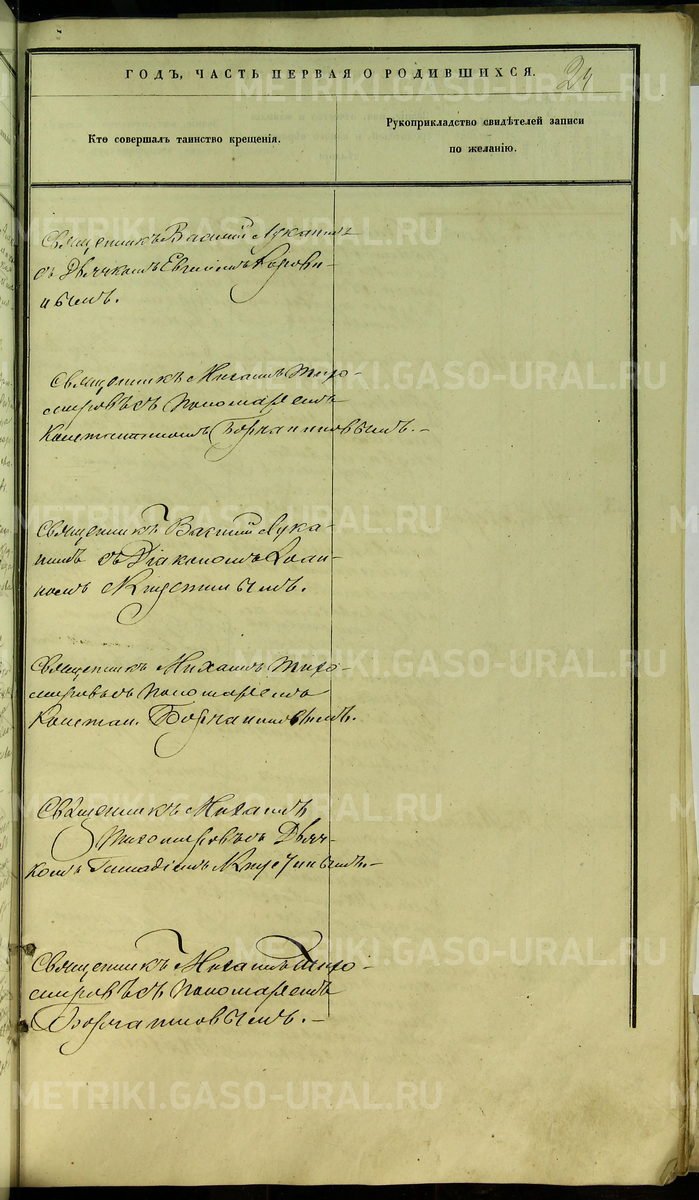 ГОДЪ, ЧАСТЬ ПЕРВАЯ О РОДИВШИХСЯ.
24
Кто совершалъ таинство крещенія.
Рукоприкладство свидѣтелей записи
по желанію.
Священникъ Василій Луканинъ
съ Дьячкомъ Евгеніемъ
Священникъ Михаилъ Тихо-
мировъ съ Пономаремъ
Константиномъ
Священникъ Василій Лука-
нинъ съ Діакономъ Іоан-
номъ
Священникъ Михаилъ Тихо-
мировъ съ Пономаремъ
Констан.
Священникъ Михаилъ
Тихомировъ съ Дьяч-
комъ Геннадіемъ
Священникъ Михаилъ Тихо-
мировъ съ Пономаремъ
METRIKI.GASO-URAL.RU